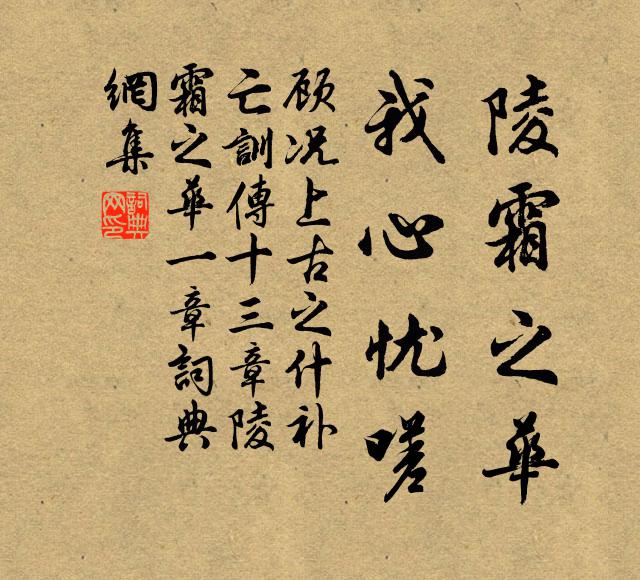 陵霜之華
我心忧嗟
顾况上古之什补
亡訓傳十三章陵
霜之華一章詞典
網集
詞典
网印